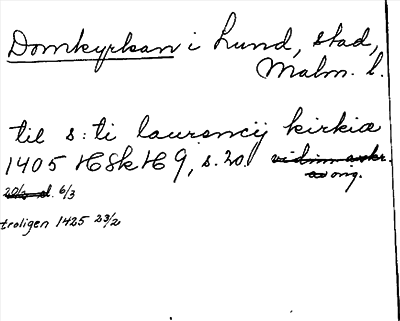 Domkyrkan i Lund, stad,
Malm. l.
til s:ti laurencij kirkiæ
1405 HSkH 9, s. 20. vidim avskr.
av orig.
20/2 6/3
troligen 1425 23/2